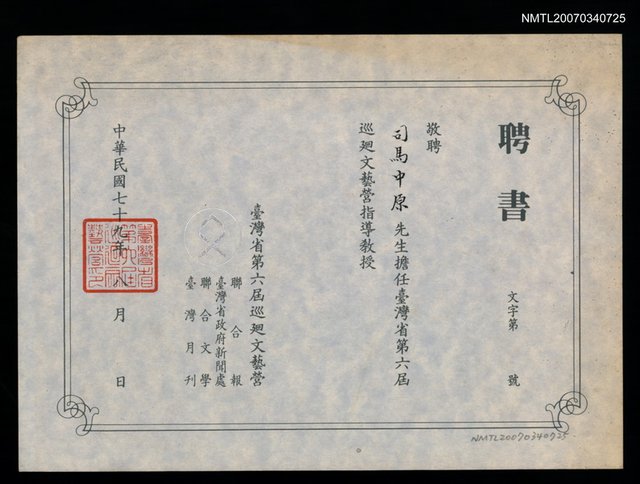 NMTL20070340725
聘書
文字第　號
敬聘
司馬中原先生擔任臺灣省第六屆
巡廻文藝營指導教授
臺灣省第六屆巡廻文藝營
聯合報
臺灣省政府新聞處
聯合文學
臺灣月刊
中華民國七十九年八月　日
NMTL20070340725